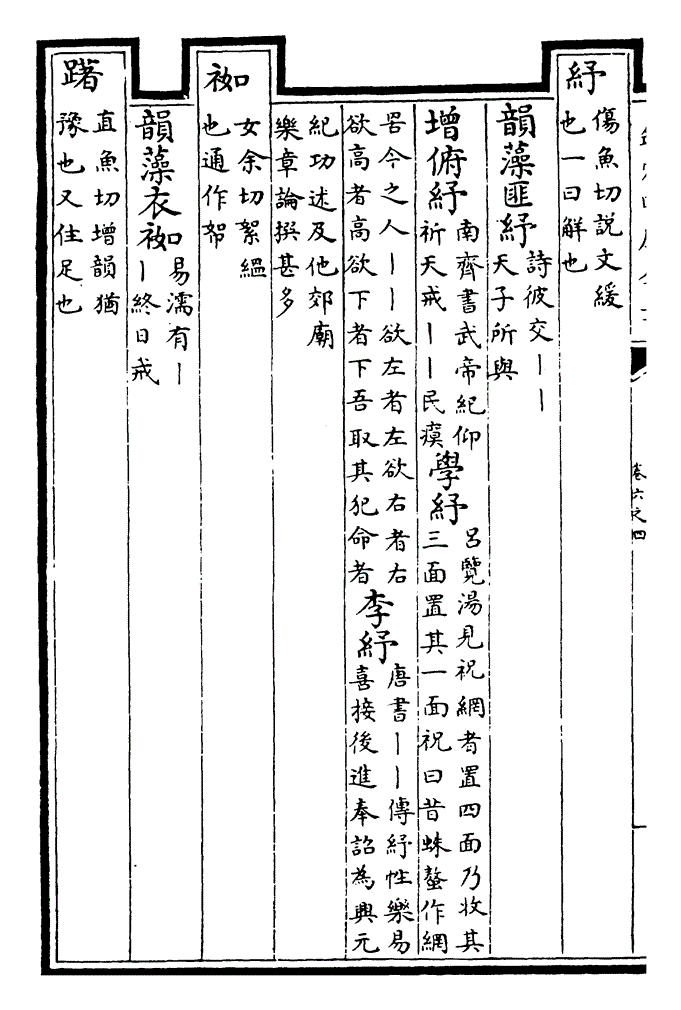 紓
傷魚切説文緩
也一曰解也
韻藻匪紓
詩彼交丨丨
天子所與
增俯紓
南齊書武帝紀仰
祈天戒丨丨民瘼
學紓
吕覽湯見祝網者置四面乃收其
三面置其一面祝曰昔蛛蝥作網
罟今之人丨丨欲左者左欲右者右
欲高者高欲下者下吾取其犯命者
李紓
唐書丨丨傳紓性樂易
喜接後進奉詔為興元
紀功述及他郊廟
樂章論撰甚多
袽
女余切絮緼
也通作帤
韻藻衣袽
易濡有丨
丨終日戒
躇
直魚切增韻猶
豫也又住足也
卷六之四